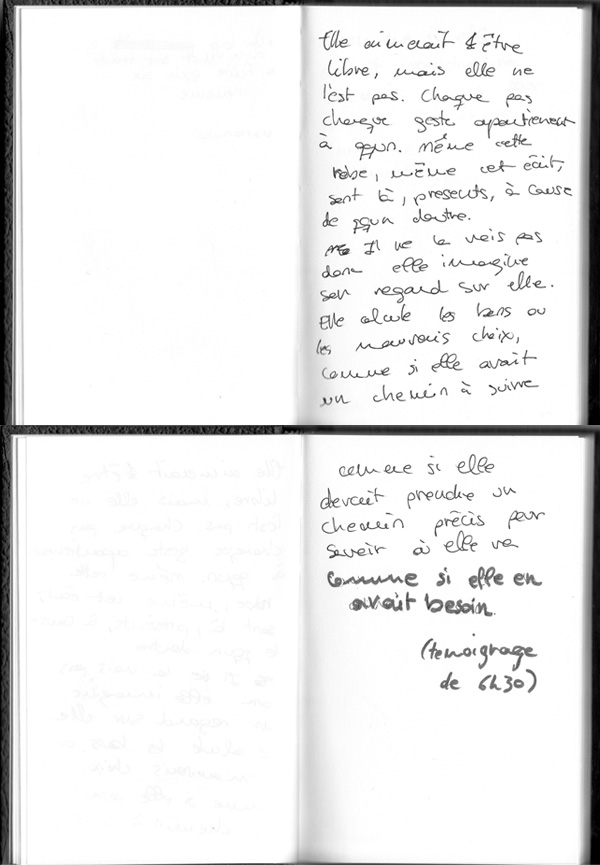 Elle aimerait être
libre, mais elle ne
l'est pas. Chaque pas
chaque geste apartiennent
à qqun. même cette
robe, même cet écrit,
sont là, presents, à cause
de qqun dautre.
Il ne la vois pas
donc elle imagine
son regard sur elle.
Elle calcule les bons ou
les mauvais choix,
comme si elle avait
un chemin à suivre
comme si elle
devait prendre un
chemin précis pour
savoir où elle va
comme si elle en
avait besoin.
(temoignage
de 6h30)